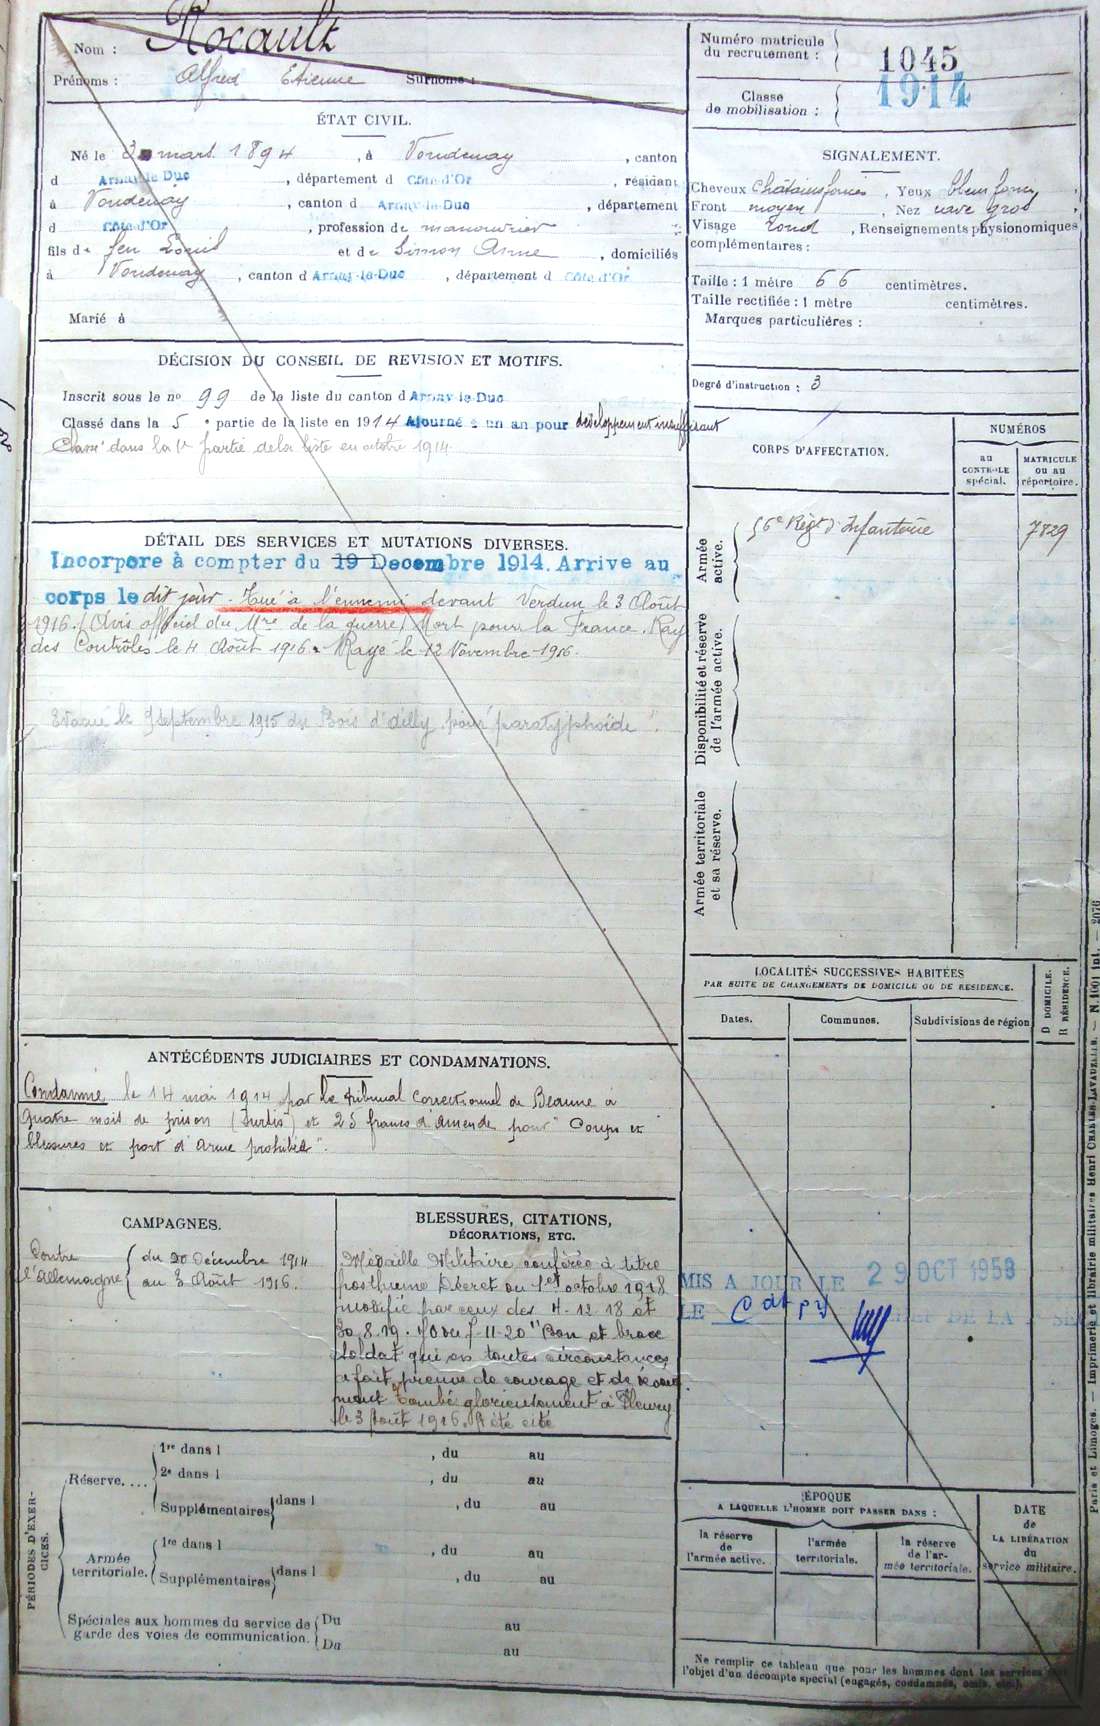 Nom : Rocault
Prénoms : Alfred Etienne Surnoms :
ÉTAT CIVIL.
Né le 3 mars 1894, à Voudenay, canton
d Arnay-le-Duc, département d Côte-d'Or, résidant
à Voudenay, canton d Arnay-le-Duc, département
d Côte-d'Or, profession de manouvrier
fils de feu Louis et de Simon Anne, domiciliés
à Voudenay, canton d Arnay-le-Duc, département d Côte-d'Or
Marié à
DÉCISION DU CONSEIL DE REVISION ET MOTIFS.
Inscrit sous le no 99 de la liste du canton d Arnay-le-Duc
Classé dans la 5e partie de la liste en 1914 Ajourné à un an pour développement insuffisant
Classé dans la 1re partie de la liste en octobre 1914
DÉTAIL DES SERVICES ET MUTATIONS DIVERSES.
Incorporé à compter du 19 Decembre 1914. Arrive au
corps le dit jour. Tué à l'ennemi devant Verdun le 3 Août
1916. (Avis officiel du Mre de la guerre) Mort pour la France. Rayé
des Contrôles le 4 Août 1916. Rayé le 12 Novembre 1916.
Evacué le Septembre 1915 du Bois d'Ailly pour "paratyphoïde".
ANTÉCÉDENTS JUDICIAIRES ET CONDAMNATIONS.
Condamné le 14 mai 1914 par le tribunal Correctionnel de Beaune à
quatre mois de prison (Sursis) et 25 francs d'amende pour "Coups et
blessures et port d'arme prohibée".
CAMPAGNES.
Contre l'Allemagne { du 20 Décembre 1914
au 3 Août 1916.
BLESSURES, CITATIONS,
DÉCORATIONS, ETC.
Médaille Militaire conférée à titre
posthume Décret du 1er octobre 1918
modifié par ceux des 4-12-18 et
30.8.19. JO du 7-11-20 "Bon et brave
soldat qui en toutes circonstances
a fait preuve de courage et de dévoue
ment Tombé glorieusement à Fleury
le 3 Août 1916. A été cité
PÉRIODES D'EXERCICES.
Réserve....
1re dans l , du au
2e dans l , du au
Supplémentaires dans l , du au
Armée territoriale.
1re dans l , du au
Supplémentaires dans l , du au
Spéciales aux hommes du service de
garde des voies de communication.
Du au
Du au
Numéro matricule
du recrutement : 1045
Classe
de mobilisation : 1914
SIGNALEMENT.
Cheveux Châtains foncés, Yeux bleus foncé,
Front moyen, Nez cave gros,
Visage rond, Renseignements physionomiques
complémentaires :
Taille : 1 mètre 66 centimètres.
Taille rectifiée : 1 mètre centimètres.
Marques particulières :
Degré d'instruction : 3
CORPS D'AFFECTATION.
NUMÉROS
au CONTROLE spécial.
MATRICULE ou au répertoire.
Armée active.
56e Régt d'Infanterie 7829
Disponibilité et réserve de l'armée active.
Armée territoriale et sa réserve.
LOCALITÉS SUCCESSIVES HABITÉES
PAR SUITE DE CHANGEMENTS DE DOMICILE OU DE RÉSIDENCE.
D DOMICILE.
R RÉSIDENCE.
Dates. Communes. Subdivisions de région
MIS A JOUR LE 29 OCT 1953
LE
ÉPOQUE
A LAQUELLE L'HOMME DOIT PASSER DANS :
la réserve de l'armée active.
l'armée territoriale.
la réserve de l'armée territoriale.
DATE de LA LIBÉRATION du service militaire.
Ne remplir ce tableau que pour les hommes dont les services font
l'objet d'un décompte spécial (engagés, condamnés, omis, etc.).
Paris et Limoges. — Imprimerie et librairie militaires Henri CHARLES-LAVAUZELLE. — N. 1001 int. — 2076